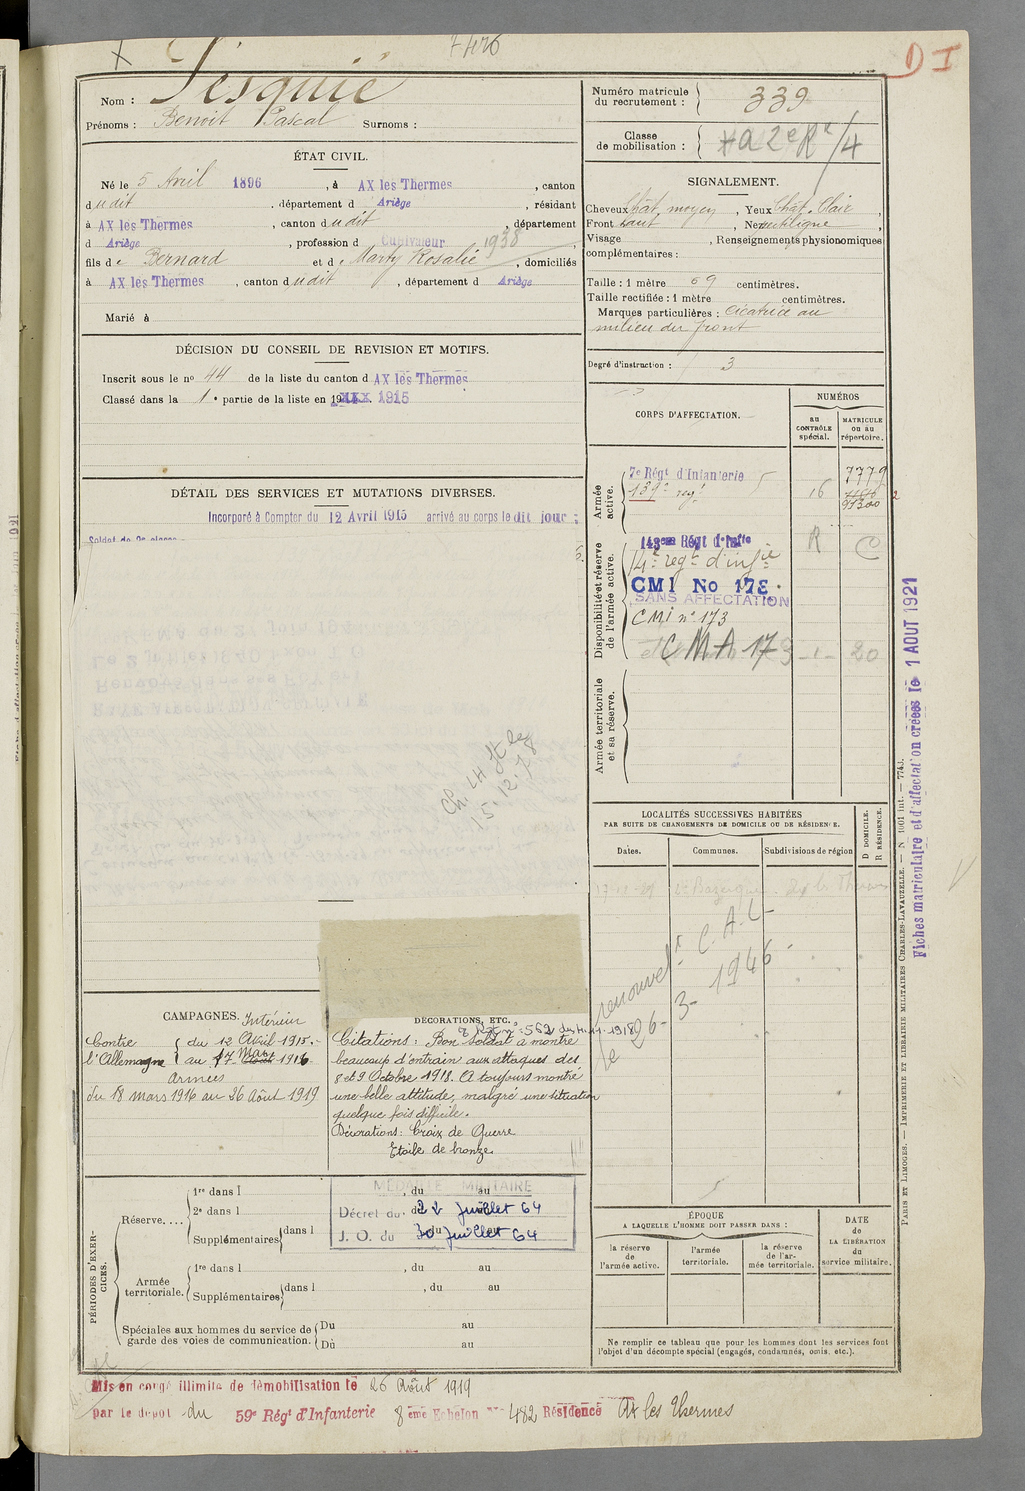 7426
D I
Nom : Pesquié
Prénoms : Benoit Pascal Surnoms :
Numéro matricule
du recrutement : 339
Classe
de mobilisation :
ÉTAT CIVIL.
Né le 5 Avril 1896, à AX les Thermes, canton
dudit, département d Ariège, résidant
à AX les Thermes, canton dudit, département
d Ariège, profession d Cultivateur 1938
fils de Bernard et de Marty Rosalie, domiciliés
à AX les Thermes, canton dudit, département d Ariège
Marié à
SIGNALEMENT.
Cheveux Chât. moyen, Yeux Chât. Clair,
Front haut, Nez rectiligne,
Visage , Renseignements physionomiques
complémentaires :
Taille : 1 mètre 69 centimètres.
Taille rectifiée : 1 mètre centimètres.
Marques particulières : Cicatrice au
milieu du front
Degré d'instruction : 3
DÉCISION DU CONSEIL DE REVISION ET MOTIFS.
Inscrit sous le no 44 de la liste du canton d AX les Thermes
Classé dans la 1e partie de la liste en 19XXX 1915
DÉTAIL DES SERVICES ET MUTATIONS DIVERSES.
Incorporé à Compter du 12 Avril 1915 arrivé au corps le dit jour ;
Soldat de 2e classe
Ch. LH
15.12.78
CORPS D'AFFECTATION.
NUMÉROS
au
CONTRÔLE
spécial.
MATRICULE
ou au
répertoire.
Armée
active.
7e Régt d'Infanterie
139e regt
16
7779
Disponibilité et réserve
de l'armée active.
143ème Régt d'Infie
14e regt d'infie
CMI No 173
SANS AFFECTATION
CMI n° 173
CMA 173 -1- 20
R
Armée territoriale
et sa réserve.
LOCALITÉS SUCCESSIVES HABITÉES
PAR SUITE DE CHANGEMENTS DE DOMICILE OU DE RÉSIDENCE.
Dates.
Communes.
Subdivisions de région
D DOMICILE.
R RÉSIDENCE.
renouvelt C.A.L-
le 26-3-1946-
CAMPAGNES.
Intérieur
Contre
l'Allemagne
du 12 Avril 1915.
au 17 Mars 1916
Armées
du 18 Mars 1916 au 26 Août 1919
DÉCORATIONS, ETC.
Citations : Bon Soldat a montré
beaucoup d'entrain aux attaques des
8 et 9 Octobre 1918. A toujours montré
une belle attitude, malgré une situation
quelque fois difficile.
Décorations : Croix de Guerre
Etoile de bronze
MÉDAILLE MILITAIRE
Décret du 22 Juillet 64
J. O. du 30 Juillet 64
PÉRIODES D'EXERCICES.
Réserve....
1re dans l , du au
2e dans l , du
Supplémentaires dans l
Armée
territoriale.
1re dans l , du au
Supplémentaires dans l , du au
Spéciales aux hommes du service de
garde des voies de communication.
Du au
Du au
ÉPOQUE
A LAQUELLE L'HOMME DOIT PASSER DANS :
la réserve
de
l'armée active.
l'armée
territoriale.
la réserve
de l'ar-
mée territoriale.
DATE
de
LA LIBÉRATION
du
service militaire.
Ne remplir ce tableau que pour les hommes dont les services font
l'objet d'un décompte spécial (engagés, condamnés, omis, etc.).
Mis en congé illimité de démobilisation le 26 Août 1919
par le dépot du 59e Régt d'Infanterie 8ème Echelon No 482 Résidence Ax les Thermes
PARIS ET LIMOGES. — IMPRIMERIE ET LIBRAIRIE MILITAIRES CHARLES-LAVAUZELLE. — N 1001 int. — 7743.
Fiches matriculaire et d'affectation créées le 1 AOUT 1921